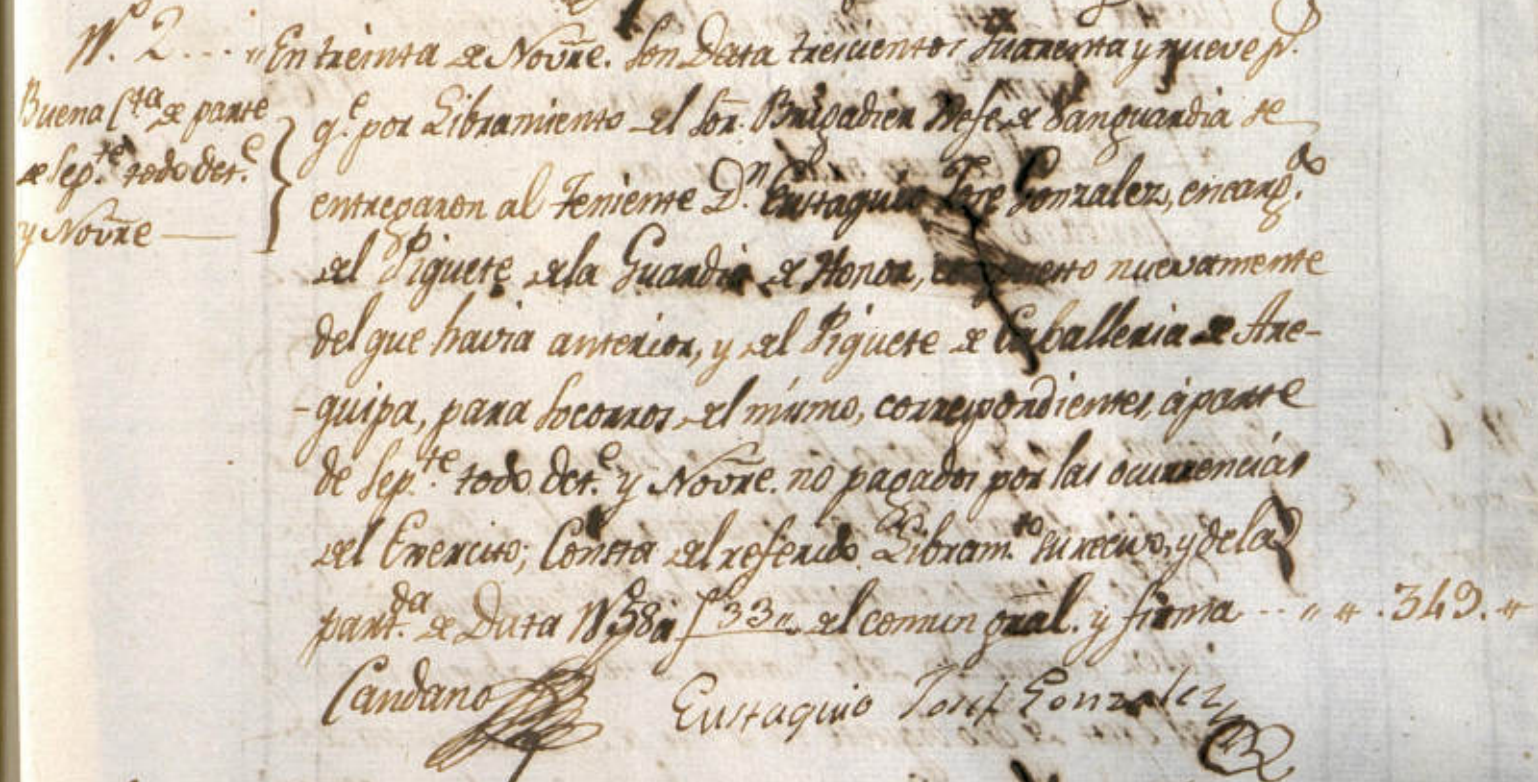 Nº 2.... "En treinta de Novre. son Data trescientos quarenta y nueve ps.
Buena Cta de parte
de Septe todo octe.
y Novre
qe. por Libramiento del Sor. Brigadier Gefe de Vanguardia se
entregaron al Teniente Dn. Eustaquio Jose Gonzalez, encargdo.
del Piquete dela Guardia de Honor, nuevamente
del que havia anterior, y del Piquete de Caballeria de Are-
-quipa, para socorros del mismo, correspondientes, à parte
de Septe. todo octe. y Novre. no pagados por las ocurrencias
del Exercito; Consta del referido Libramto. su recivo, y dela
partda. de Data Nº 58 à f 33" del comun gral. y firma ... " " . 349. "
Candano Eustaquio Josef Gonzalez